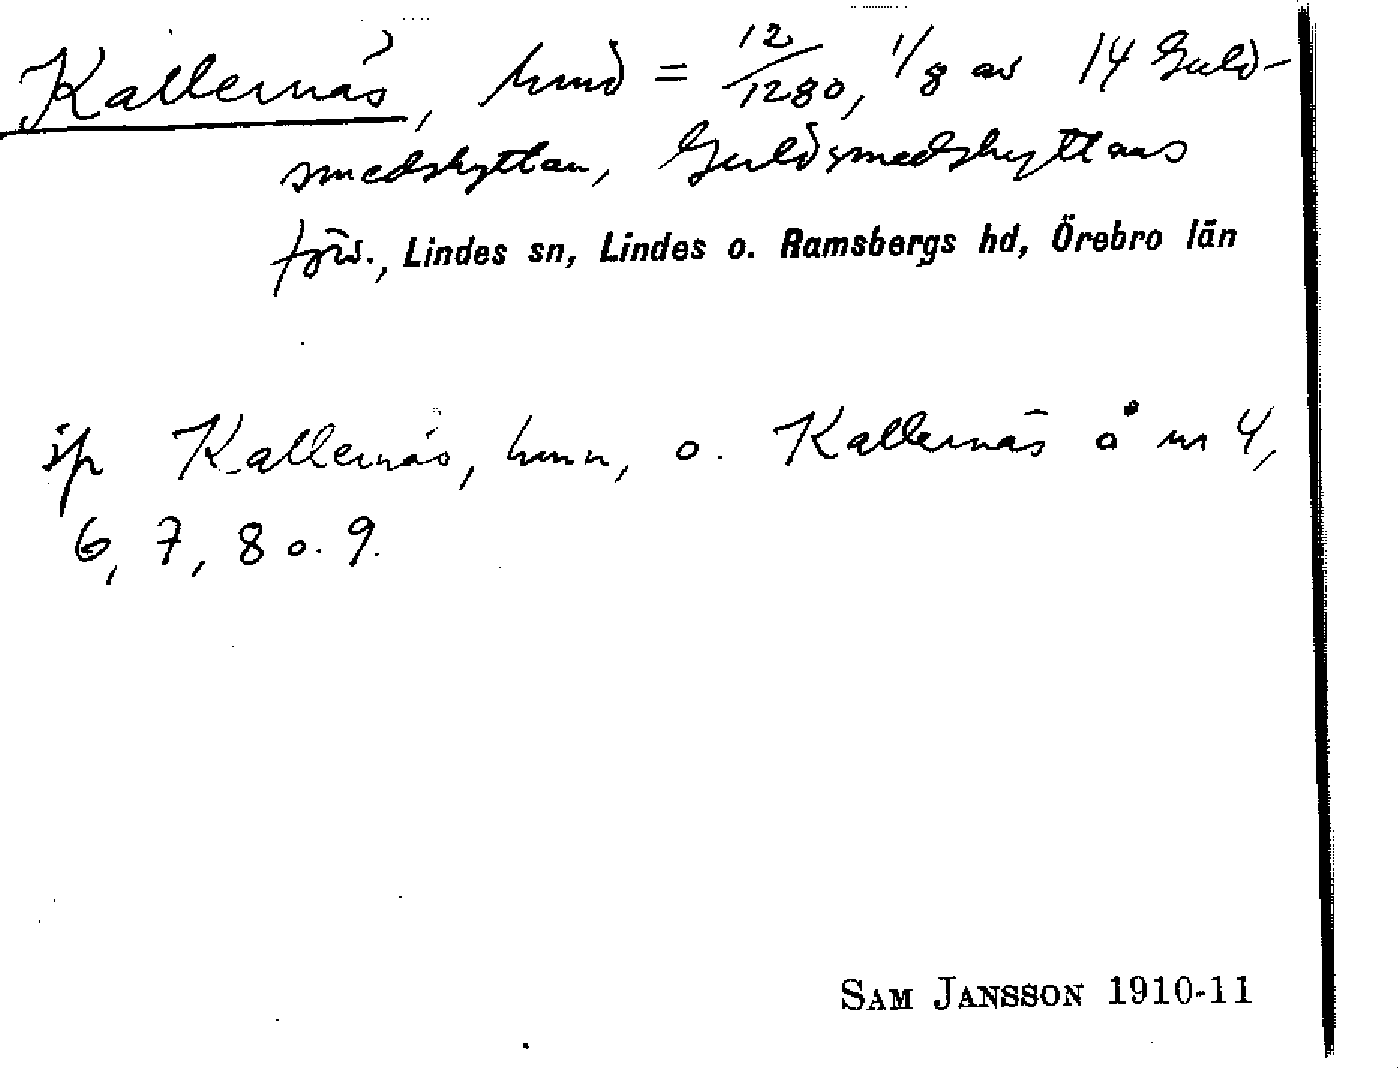 Kallernäs, hmd = 12/1280, 1/8 av 14 Guld-
smedshyttan, Guldsmedshyttans
förs., Lindes sn, Lindes o. Ramsbergs hd, Örebro län
Kallernäs, hmn, o. Kallernäs å nr 4,
6, 7, 8 o. 9.
SAM JANSSON 1910-11